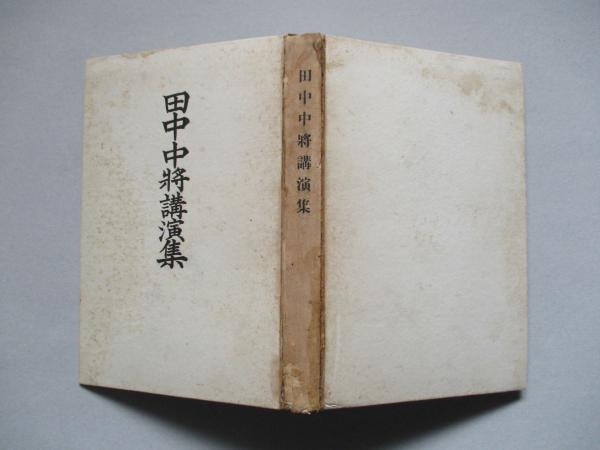 田中中將講演集
田中中將講演集